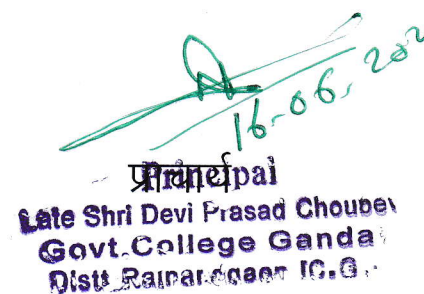 16-06-202
प्राचार्य
Principal
Late Shri Devi Prasad Choubey
Govt. College Ganda
Distt Rajnandgaon (C.G.